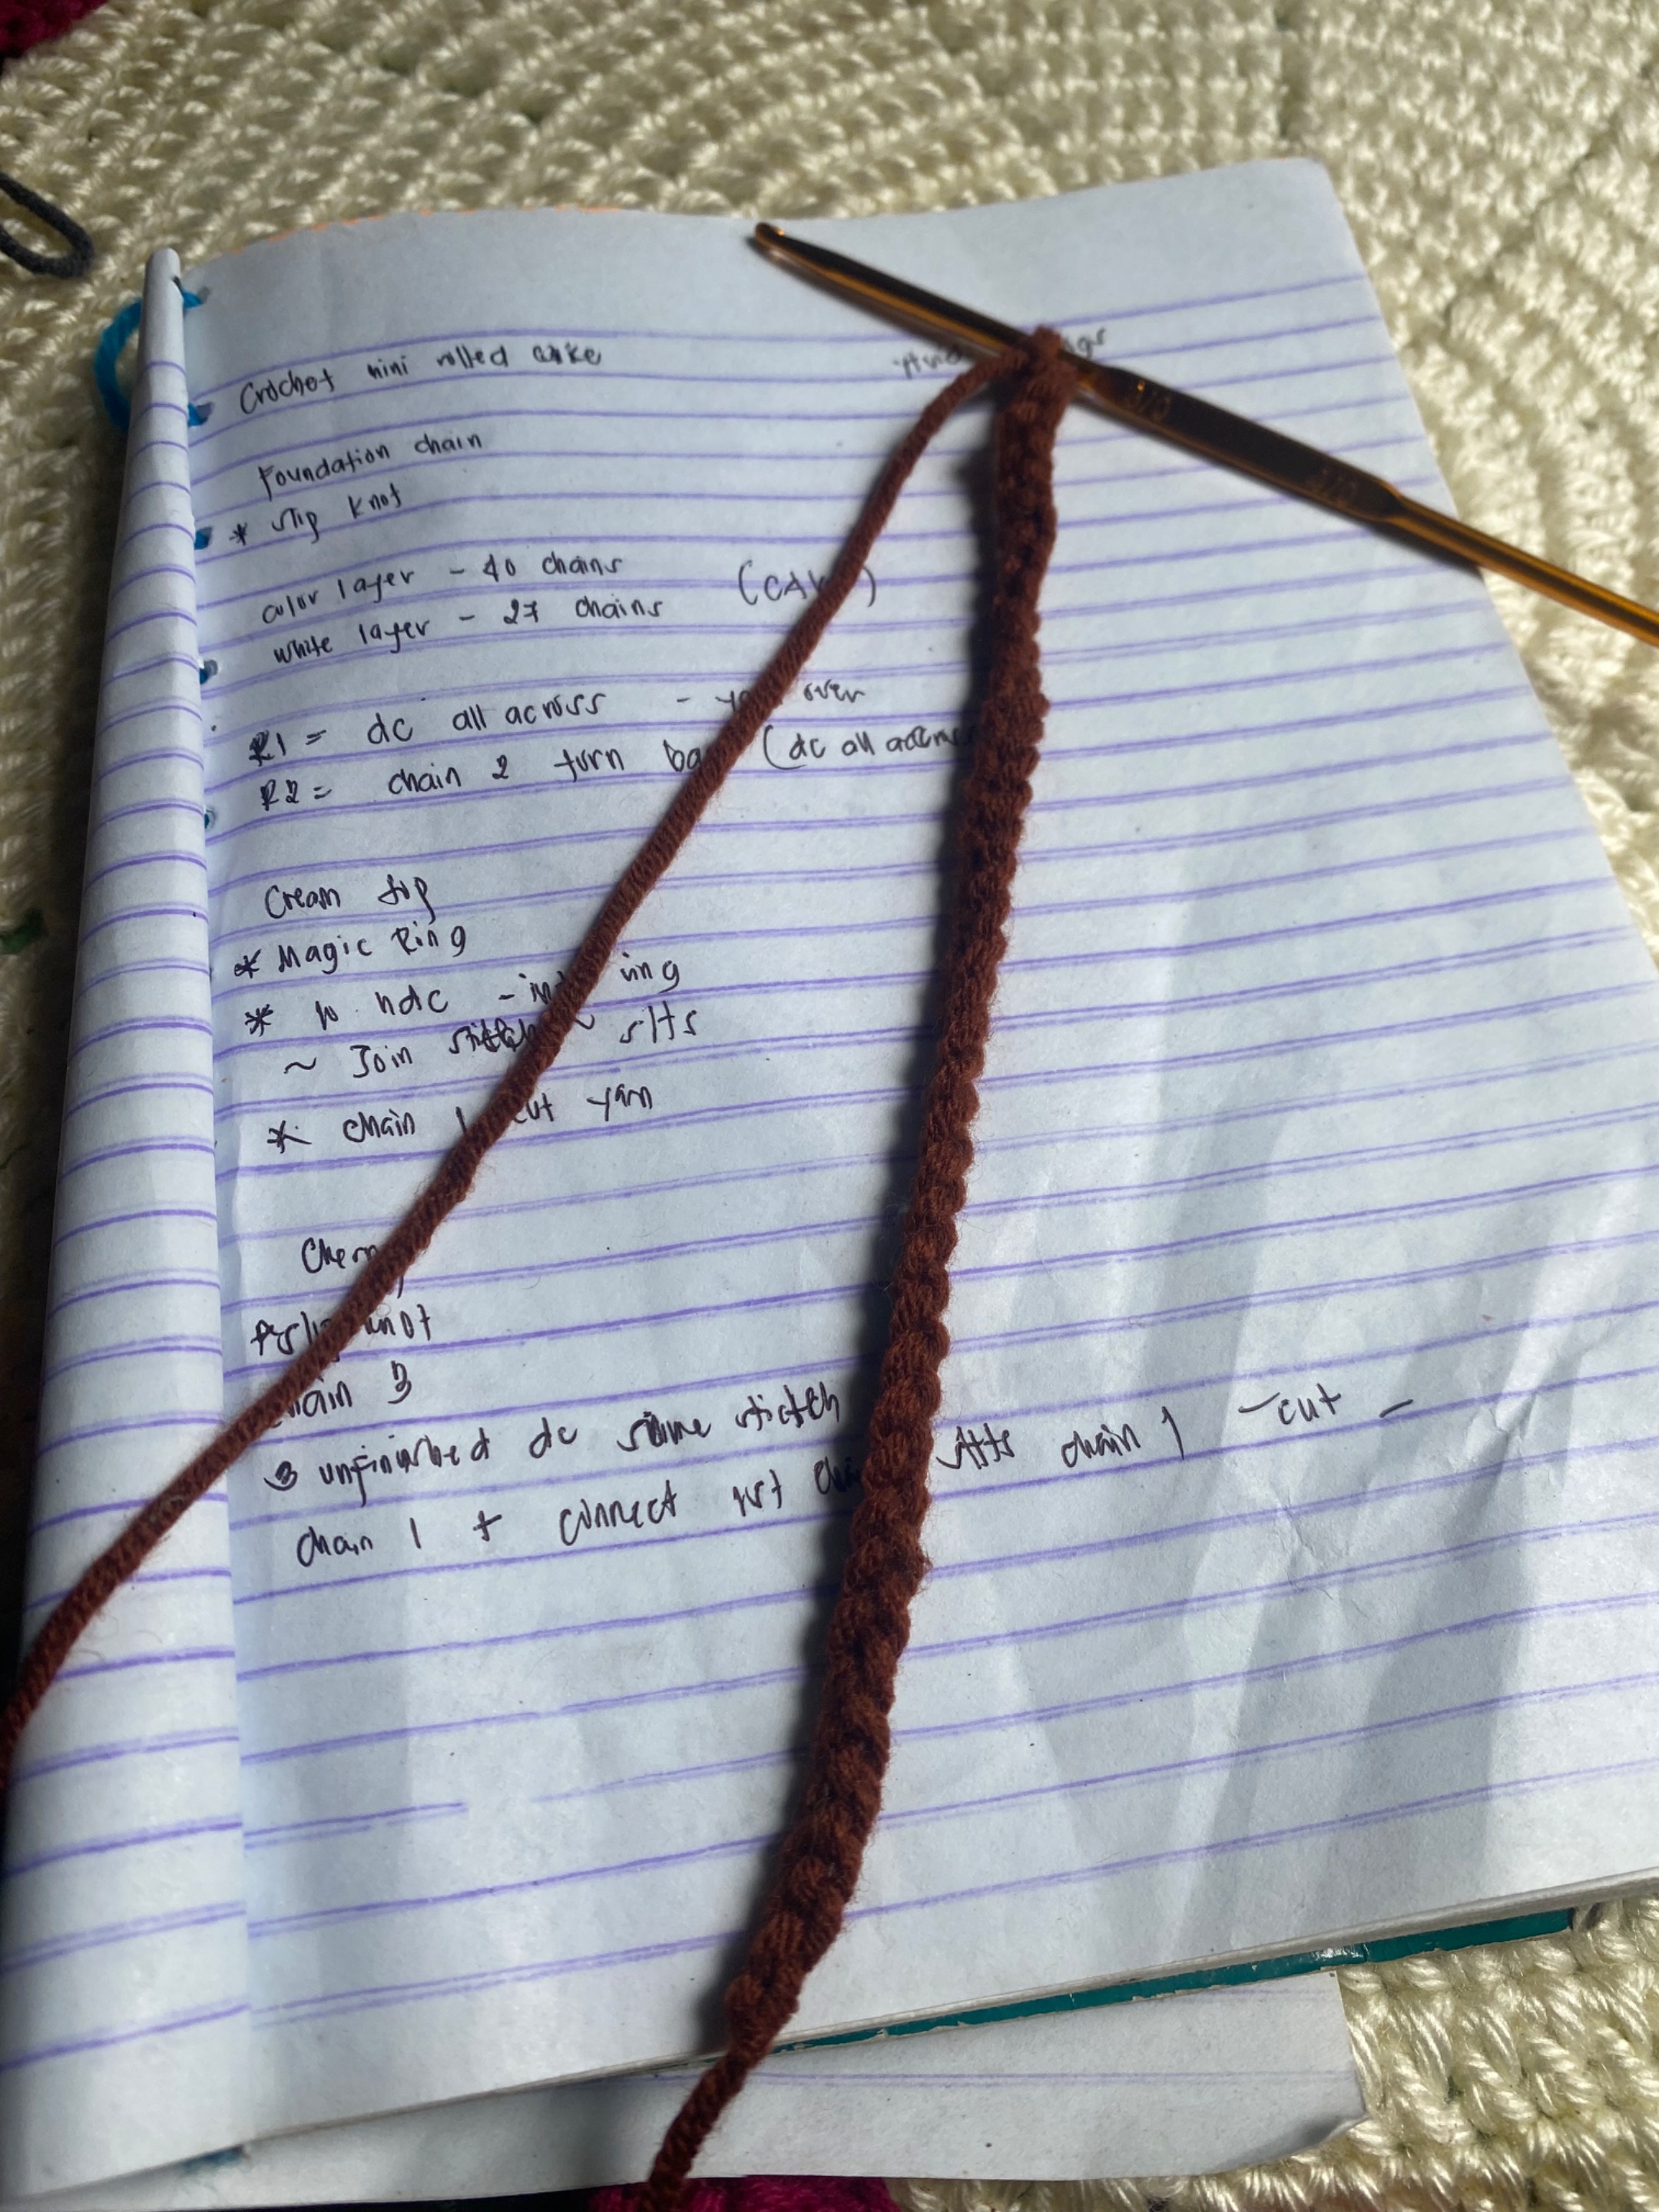 Crochet mini rolled cake
Foundation chain
* slip knot
color layer - 40 chains
white layer - 27 chains
R1 = dc all across - over
R2 = chain 2 turn (dc all across
Cream top
* Magic Ring
* 10 hdc - ing
~ Join slts
* chain 1 cut yarn
3
3 unfinished dc same stictch
chain 1 + connect slts chain 1 - cut -